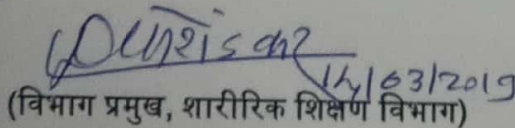 14/03/2019
(विभाग प्रमुख, शारीरिक शिक्षण विभाग)